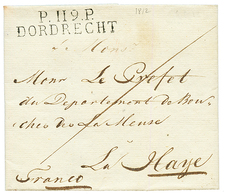 P.119.P.
DORDRECHT
1812
à Monsr
Monsr Le Prefet
du Departement de Bou-
ches de La Meuse
La Haye
Franco